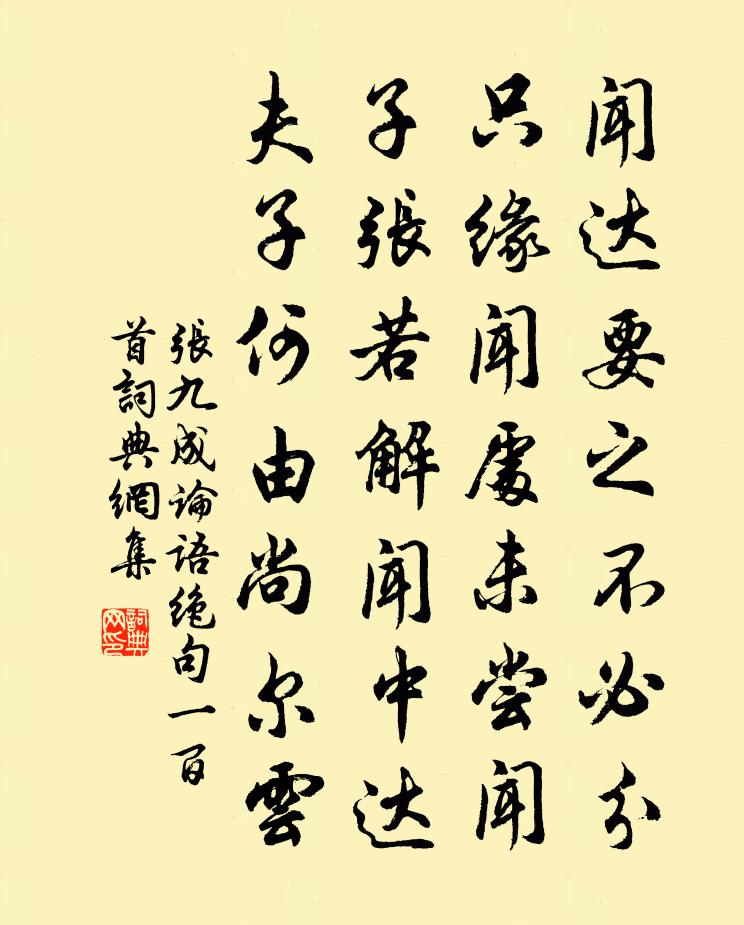 闻达要之不必分
只缘闻處未尝闻
子張若解闻中达
夫子何由尚尔雲
張九成论语绝句一百
首詞典網集
詞典网印